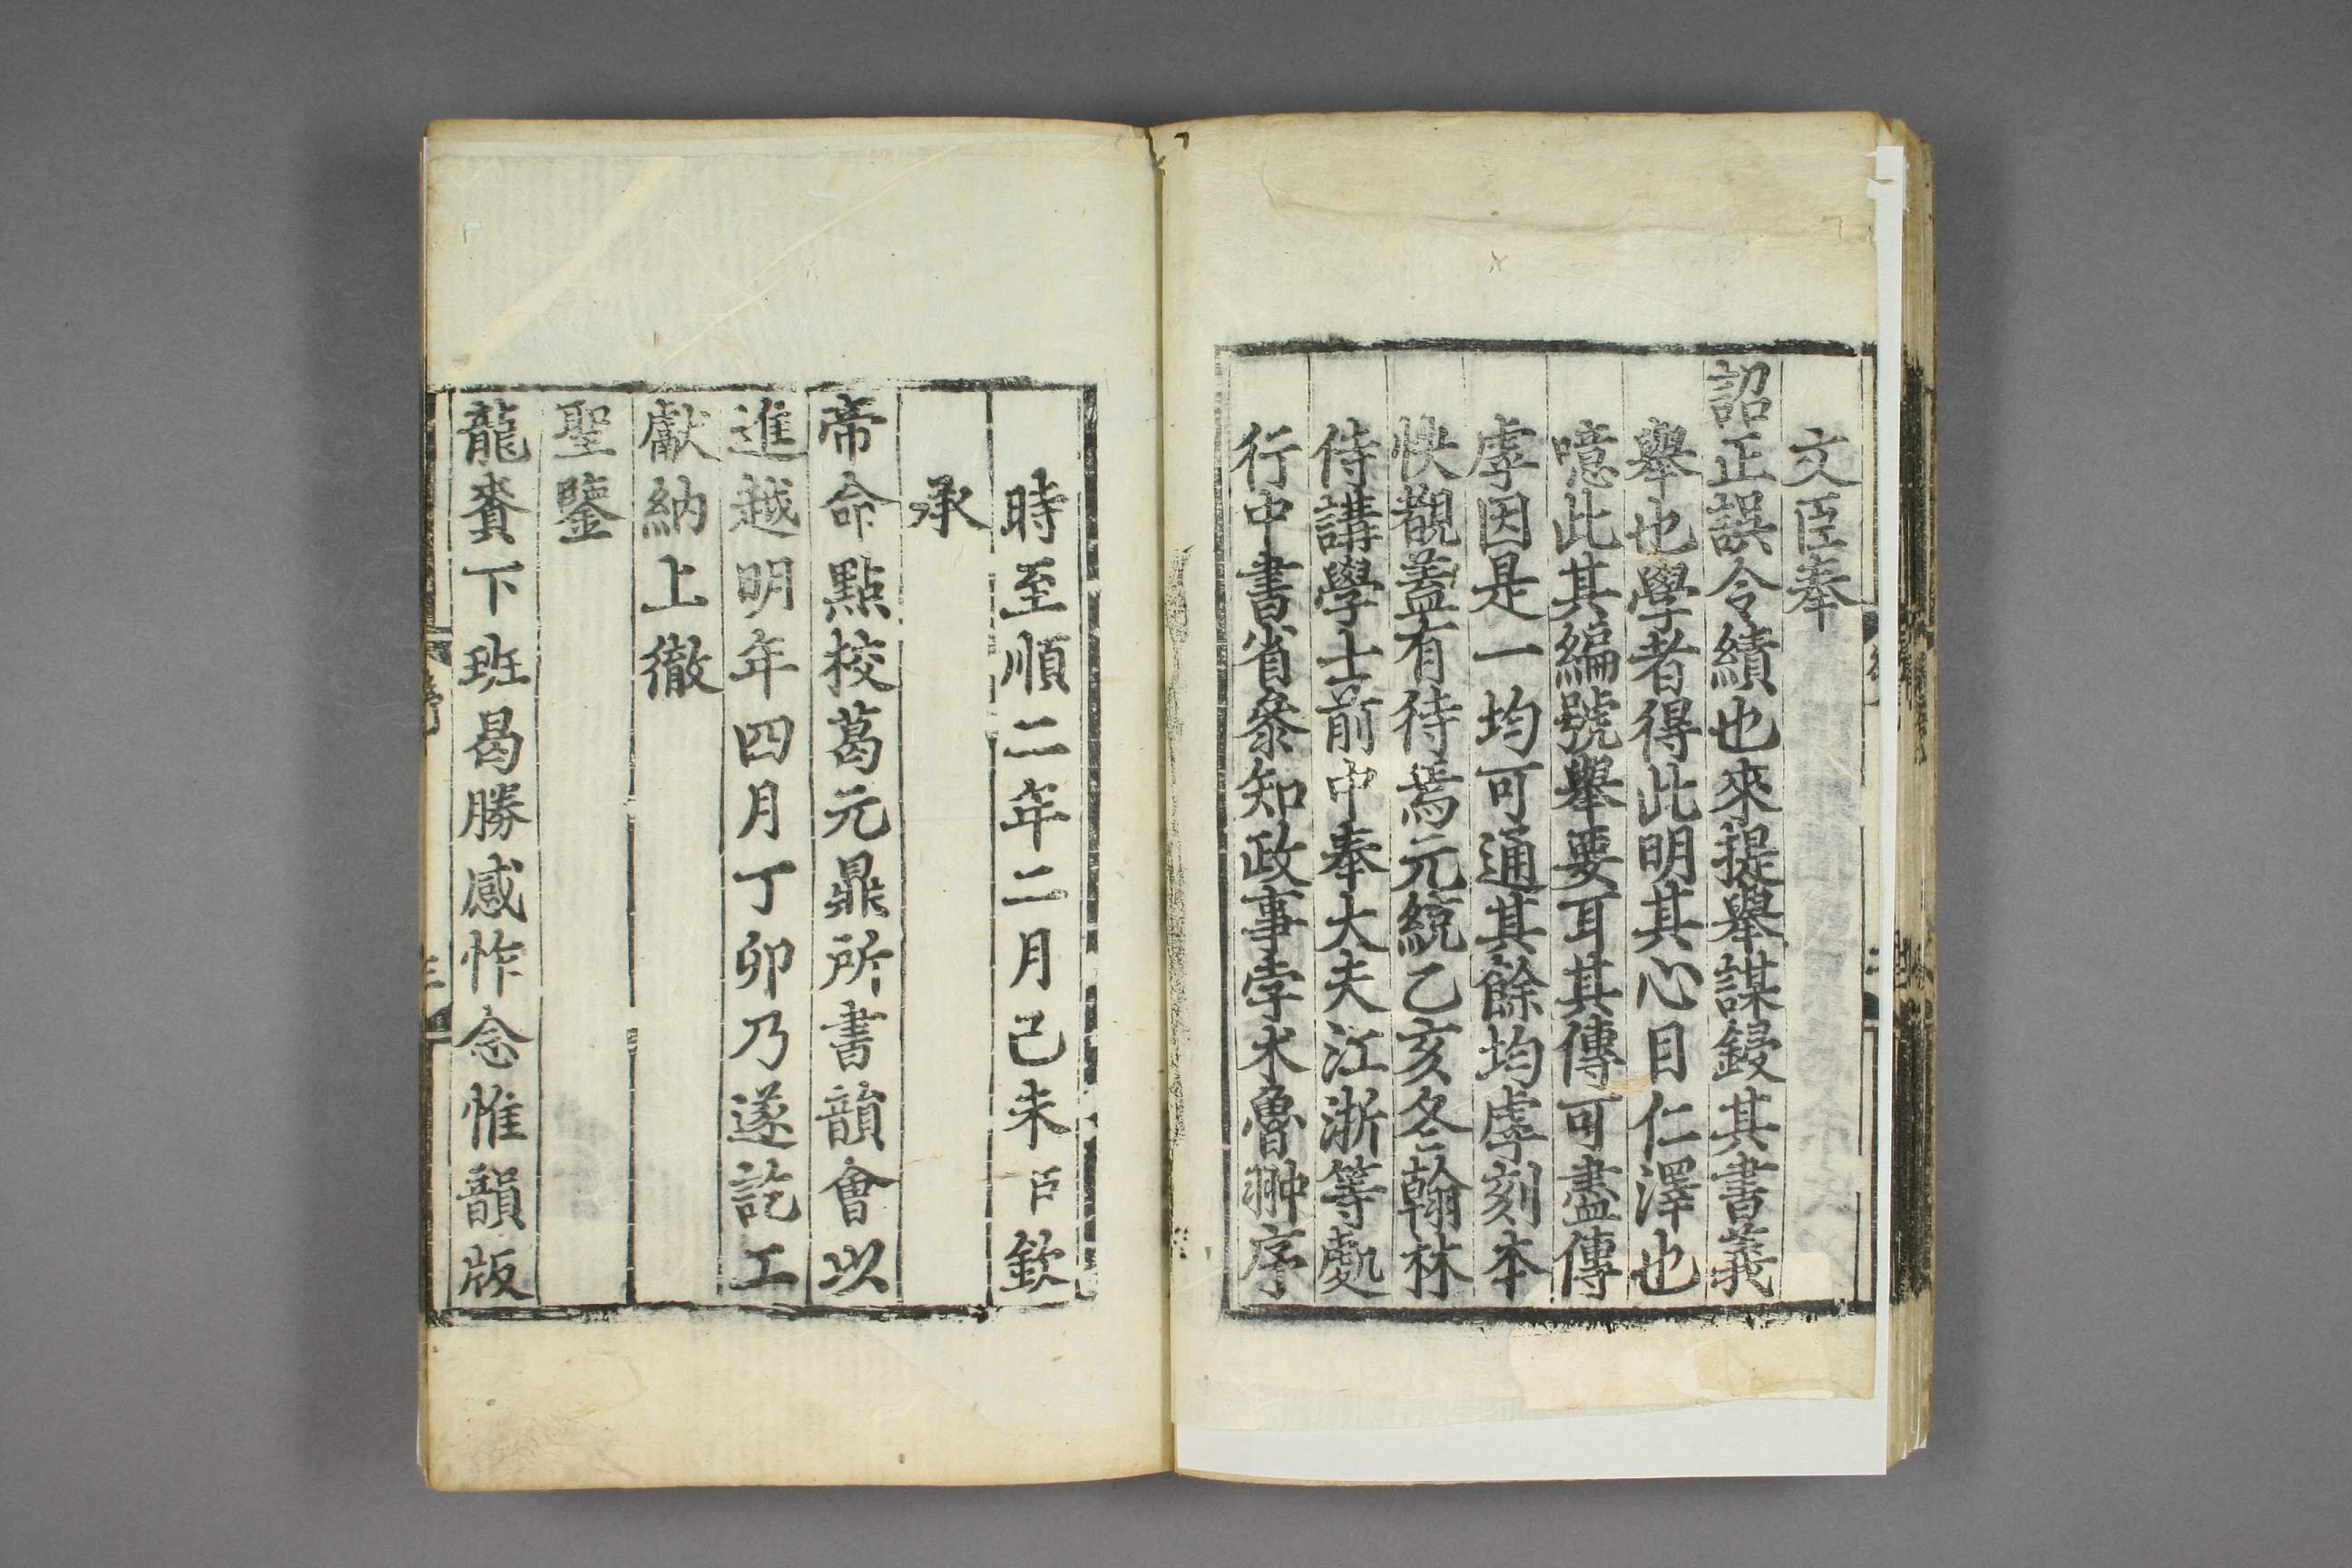 文臣奉
詔正誤令績也來提舉謀鋟其書義
舉也學者得此明其心目仁澤也
噫此其編號舉要耳其傳可盡傳
虖因是一均可通其餘均虖刻本
快覩蓋有待焉元統乙亥冬翰林
侍講學士前中奉大夫江浙等處
行中書省叅知政事孛朮魯翀序
時至順二年二月己未臣欽
承
帝命點校葛元鼎所書韻會以
進越明年四月丁卯乃遂訖工
獻納上徹
聖鑒
龍賚下班曷勝感怍念惟韻版